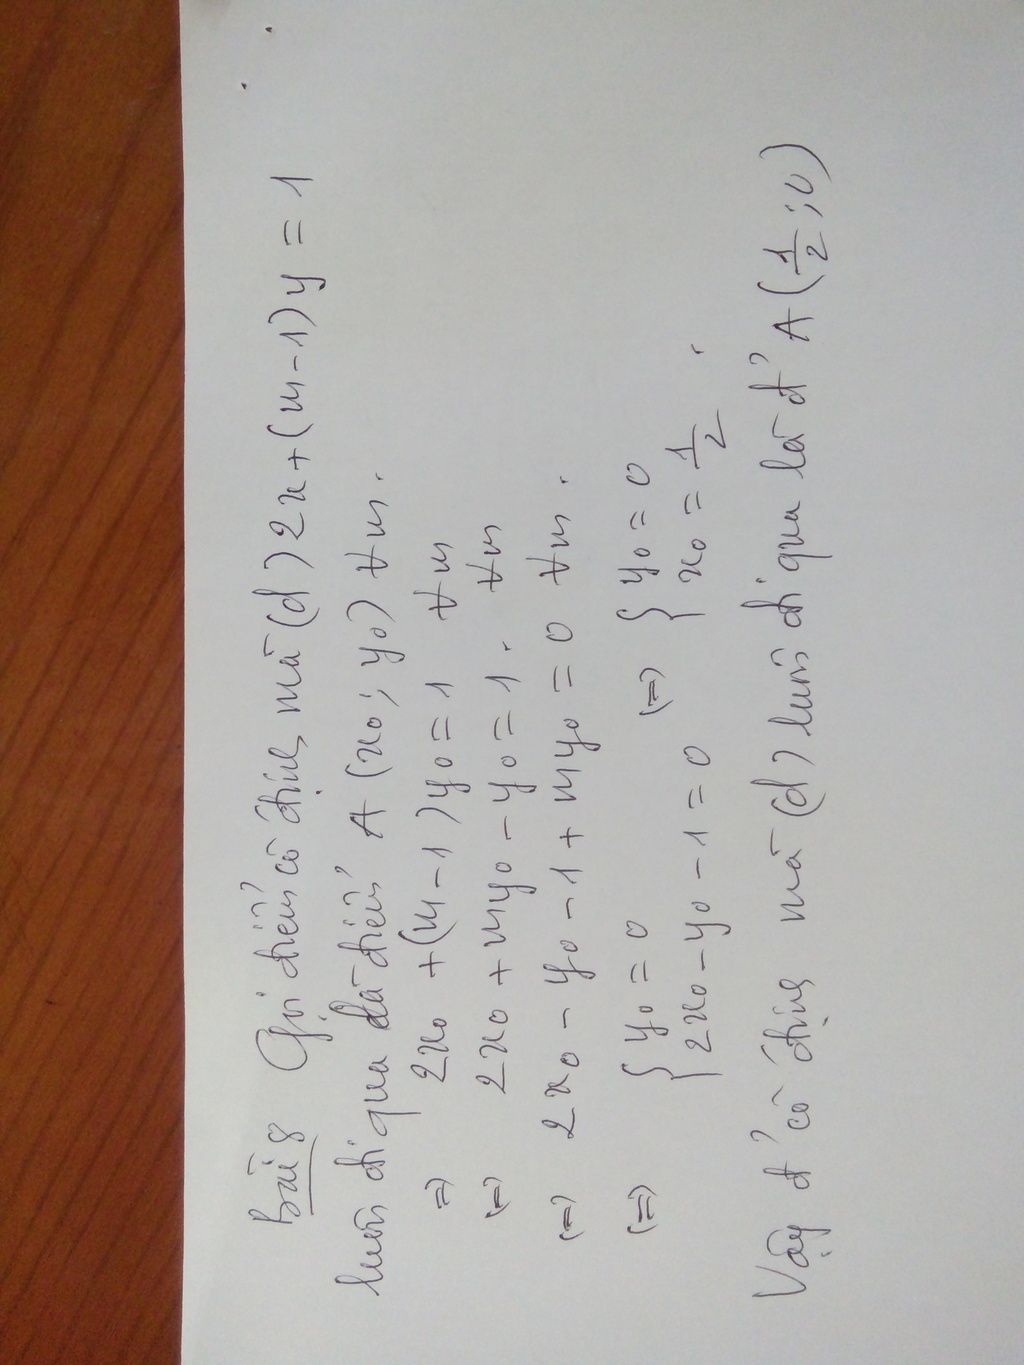 Bài 8 Gọi điểm cố định mà (d) 2x + (m - 1)y = 1
luôn đi qua là điểm A (x₀; y₀) ∀m.
⇒ 2x₀ + (m - 1)y₀ = 1 ∀m
⇔ 2x₀ + my₀ - y₀ = 1. ∀m
⇔ 2x₀ - y₀ - 1 + my₀ = 0 ∀m.
⇔ { y₀ = 0 ⇔ { y₀ = 0
2x₀ - y₀ - 1 = 0 x₀ = 1/2.
Vậy đ' cố định mà (d) luôn đi qua là đ' A (1/2; 0)